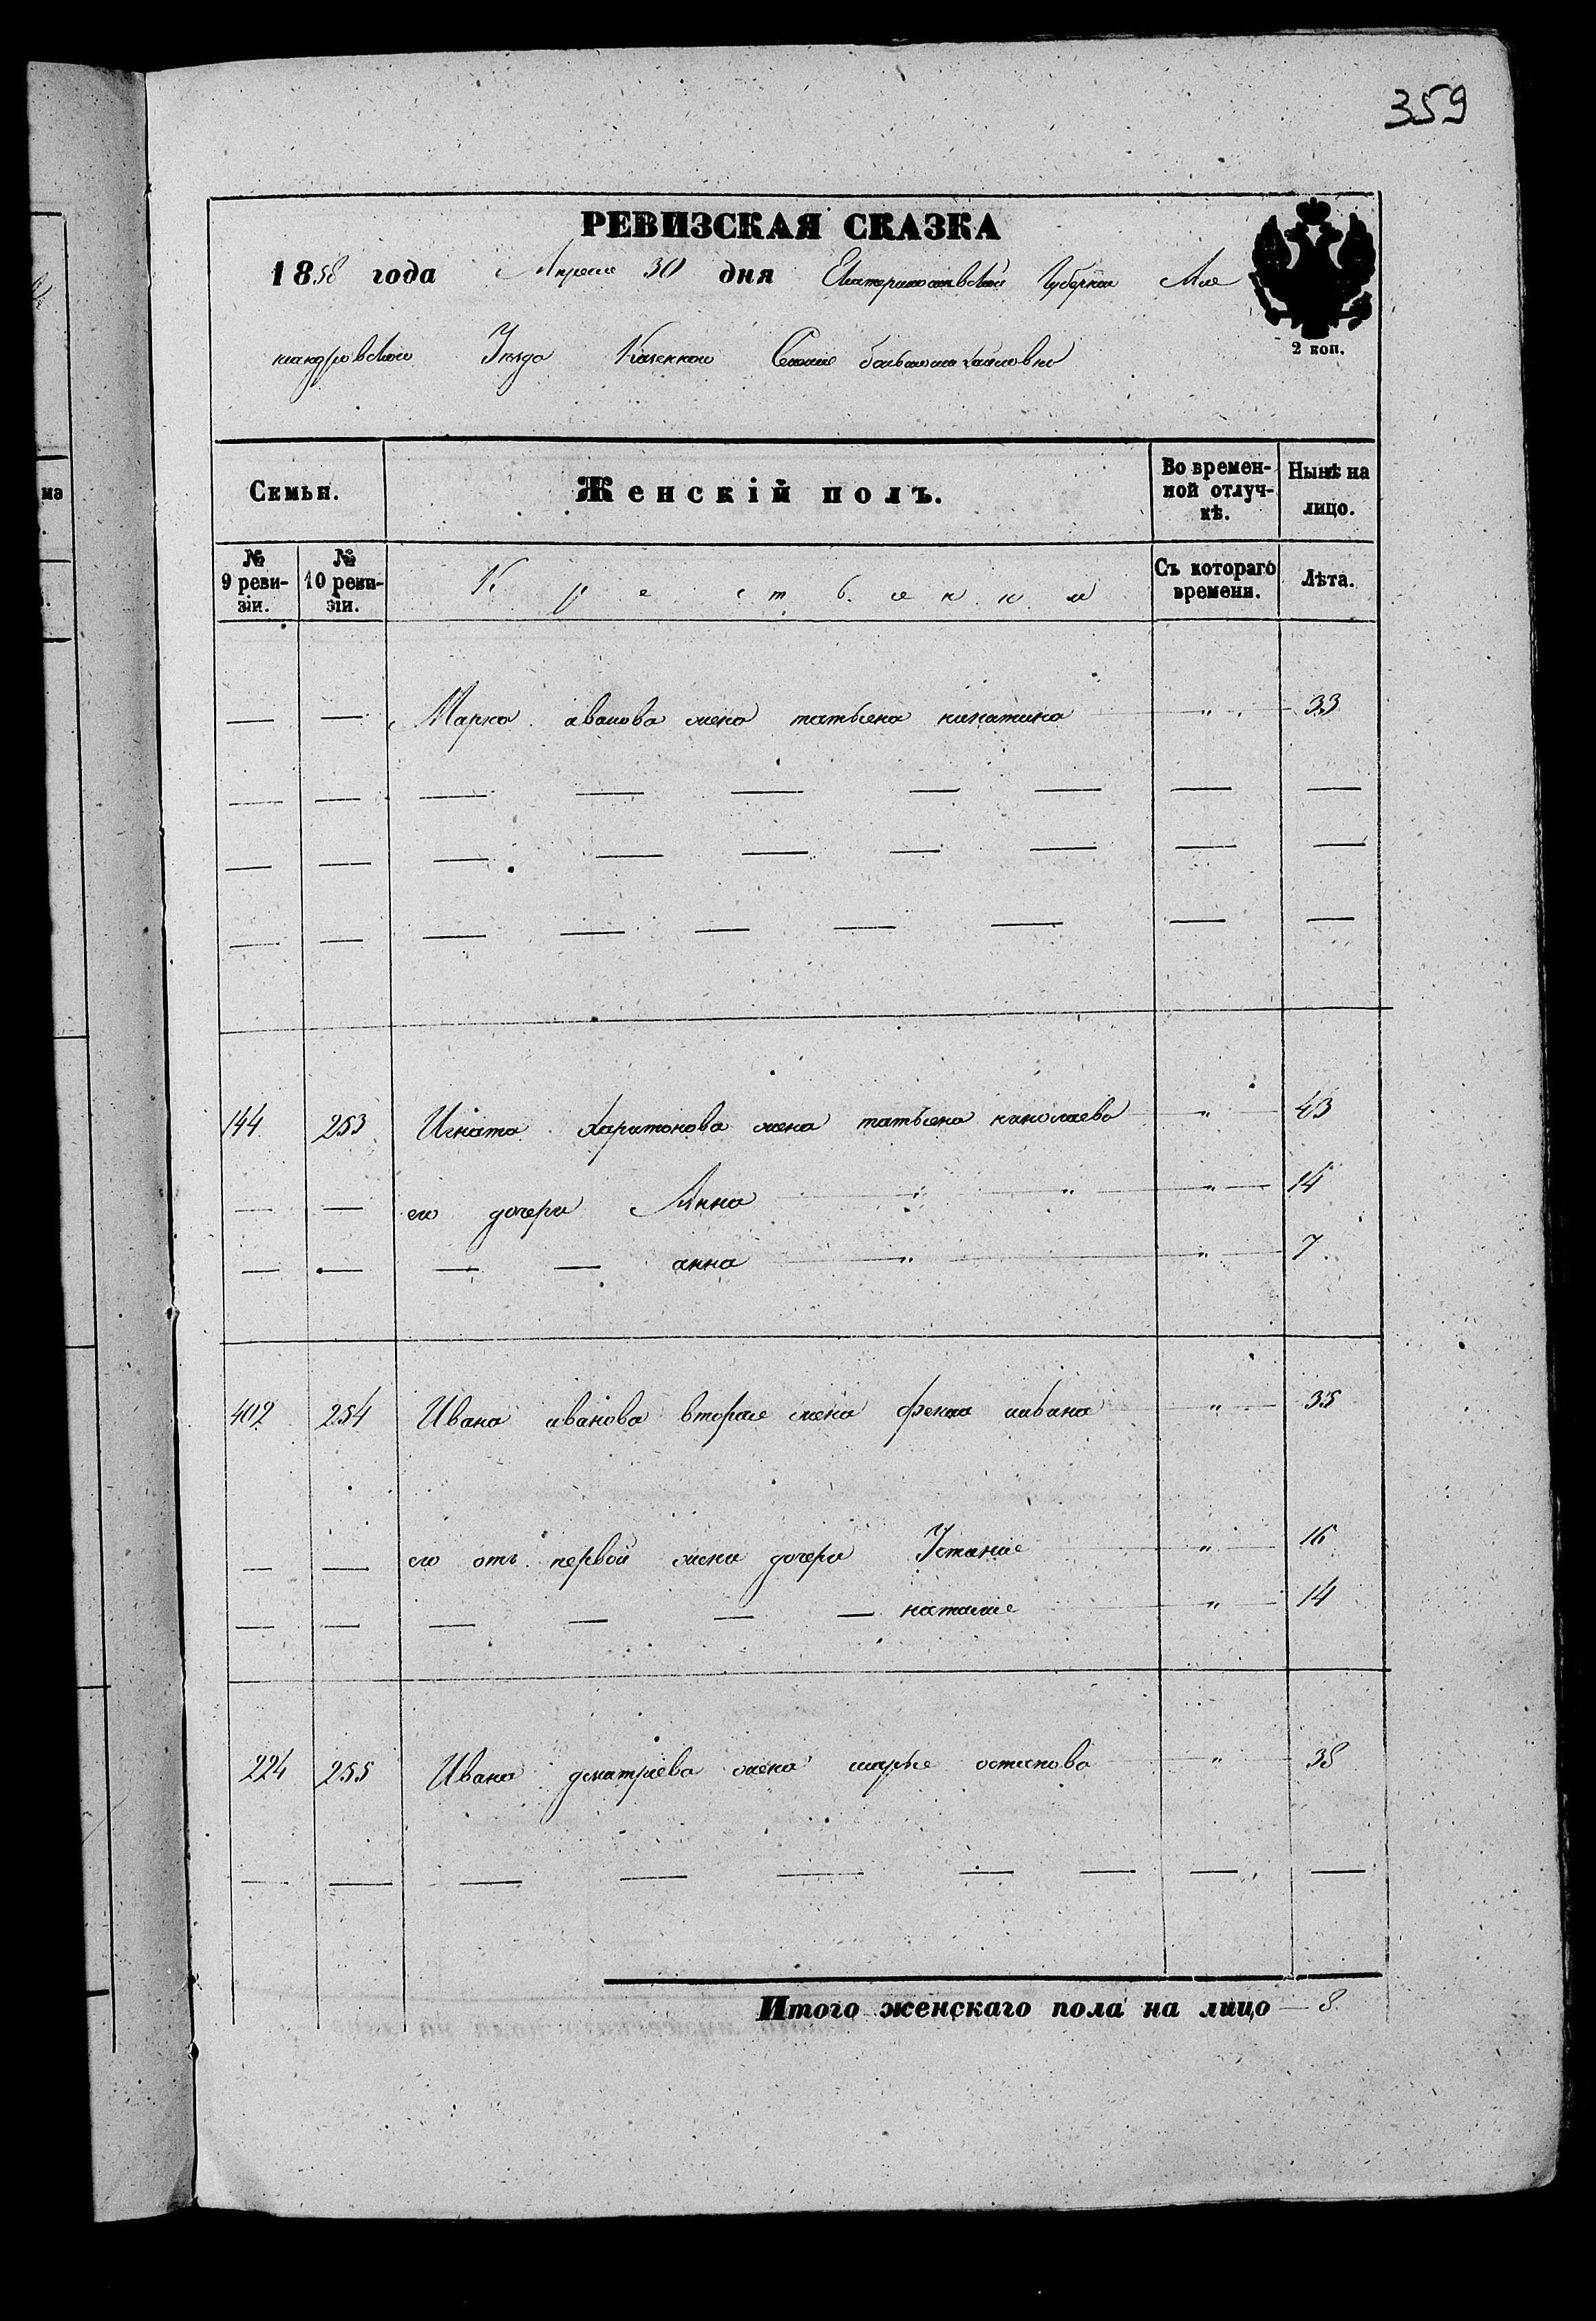 359
РЕВИЗСКАЯ СКАЗКА
1858 года Апреля 30 дня Екатеринославской Губернии Але
ксандровского Уезда Казенного Селения
2 коп.
Семьи. Женскій полъ. Во времен- Нынѣ на
ной отлуч- лицо.
кѣ.
№ № Крестьянки Съ котораго Лѣта.
9 реви- 10 реви- времени.
зіи. зіи.
— — Марка иванова жена татьяна никитина " 33
— — — — — — — — —
— — — — — — — — —
— — — — — — — — —
144 253 Игната Харитонова жена татьяна николаева " 43
— — его дочери Анна " " " 14
— — — — анна " " 7
402 254 Ивана иванова вторая жена " 35
— — его отъ первой жены дочери Устинія " 16
— — — — — — наталія " 14
224 255 Ивана дмитріева жена марья остапова " 38
— — — — — — — — —
Итого женскаго пола на лицо — 8